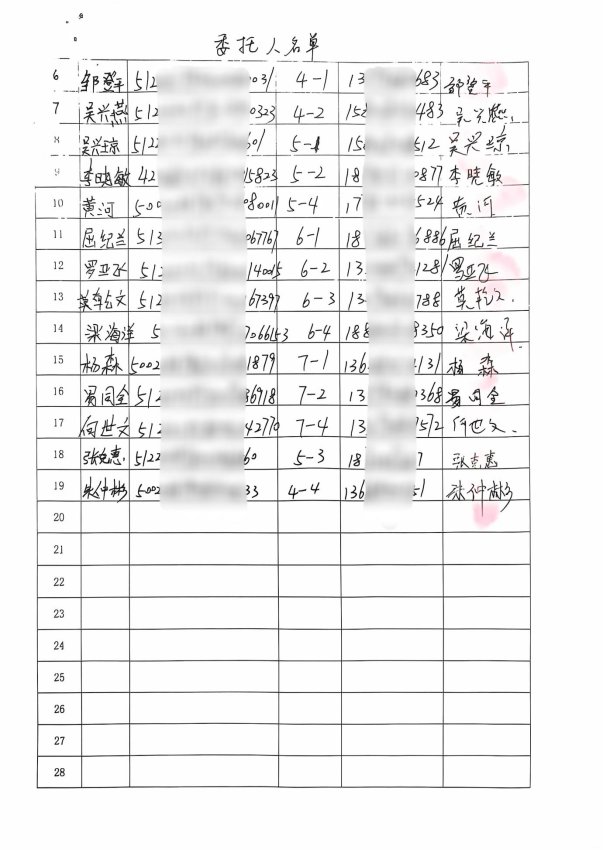 委托人名单
6 邹登平 512 0031 4-1 13 683 邹登平
7 吴兴燕 512 0323 4-2 158 483 吴兴燕
8 吴兴琼 5122 601 5-1 150 512 吴兴琼
9 李晓敏 42 15823 5-2 18 0877 李晓敏
10 黄河 500 08001 5-4 17 524 黄河
11 屈纪兰 513 067767 6-1 18 6886 屈纪兰
12 罗亚飞 512 6-2 13 1281 罗亚飞
13 512 167397 6-3 13 788
14 梁海洋 5 7066153 6-4 188 8350 梁海洋
15 杨森 5002 1879 7-1 136 4131 杨森
16 512 36918 7-2 13 1368
17 何世文 512 42770 7-4 13 7572 何世文
18 张克惠 5122 60 5-3 18 7 张克惠
19 5002 33 4-4 136 51
20
21
22
23
24
25
26
27
28